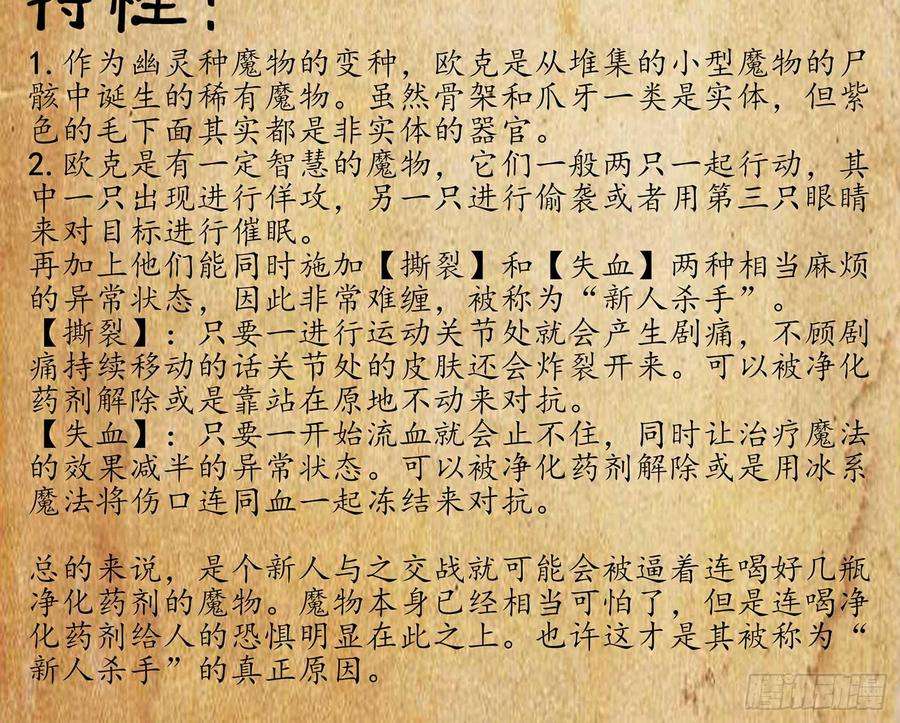 特性：
1. 作为幽灵种魔物的变种，欧克是从堆集的小型魔物的尸
骸中诞生的稀有魔物。虽然骨架和爪牙一类是实体，但紫
色的毛下面其实都是非实体的器官。
2. 欧克是有一定智慧的魔物，它们一般两只一起行动，其
中一只出现进行佯攻，另一只进行偷袭或者用第三只眼睛
来对目标进行催眠。
再加上他们能同时施加【撕裂】和【失血】两种相当麻烦
的异常状态，因此非常难缠，被称为“新人杀手”。
【撕裂】：只要一进行运动关节处就会产生剧痛，不顾剧
痛持续移动的话关节处的皮肤还会炸裂开来。可以被净化
药剂解除或是靠站在原地不动来对抗。
【失血】：只要一开始流血就会止不住，同时让治疗魔法
的效果减半的异常状态。可以被净化药剂解除或是用冰系
魔法将伤口连同血一起冻结来对抗。
总的来说，是个新人与之交战就可能会被逼着连喝好几瓶
净化药剂的魔物。魔物本身已经相当可怕了，但是连喝净
化药剂给人的恐惧明显在此之上。也许这才是其被称为“
新人杀手”的真正原因。
腾讯动漫